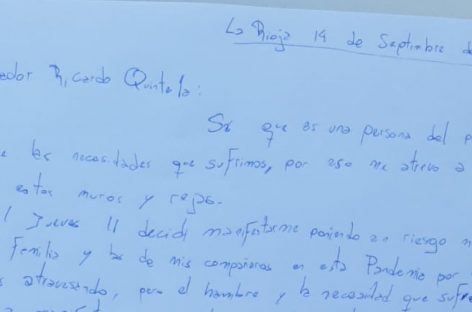 La Rioja 14 de Septiembre de
ador Ricardo Quintela:
Sé que es una persona del p
e las necesidades que sufrimos, por eso me atrevo a
estos muros y rejas.
l Jueves 11 decidí manifestarme poniendo en riesgo m
Familia y las de mis compañeros en esta Pandemia por
s atravesando, pero el hambre y la necesidad que sufre